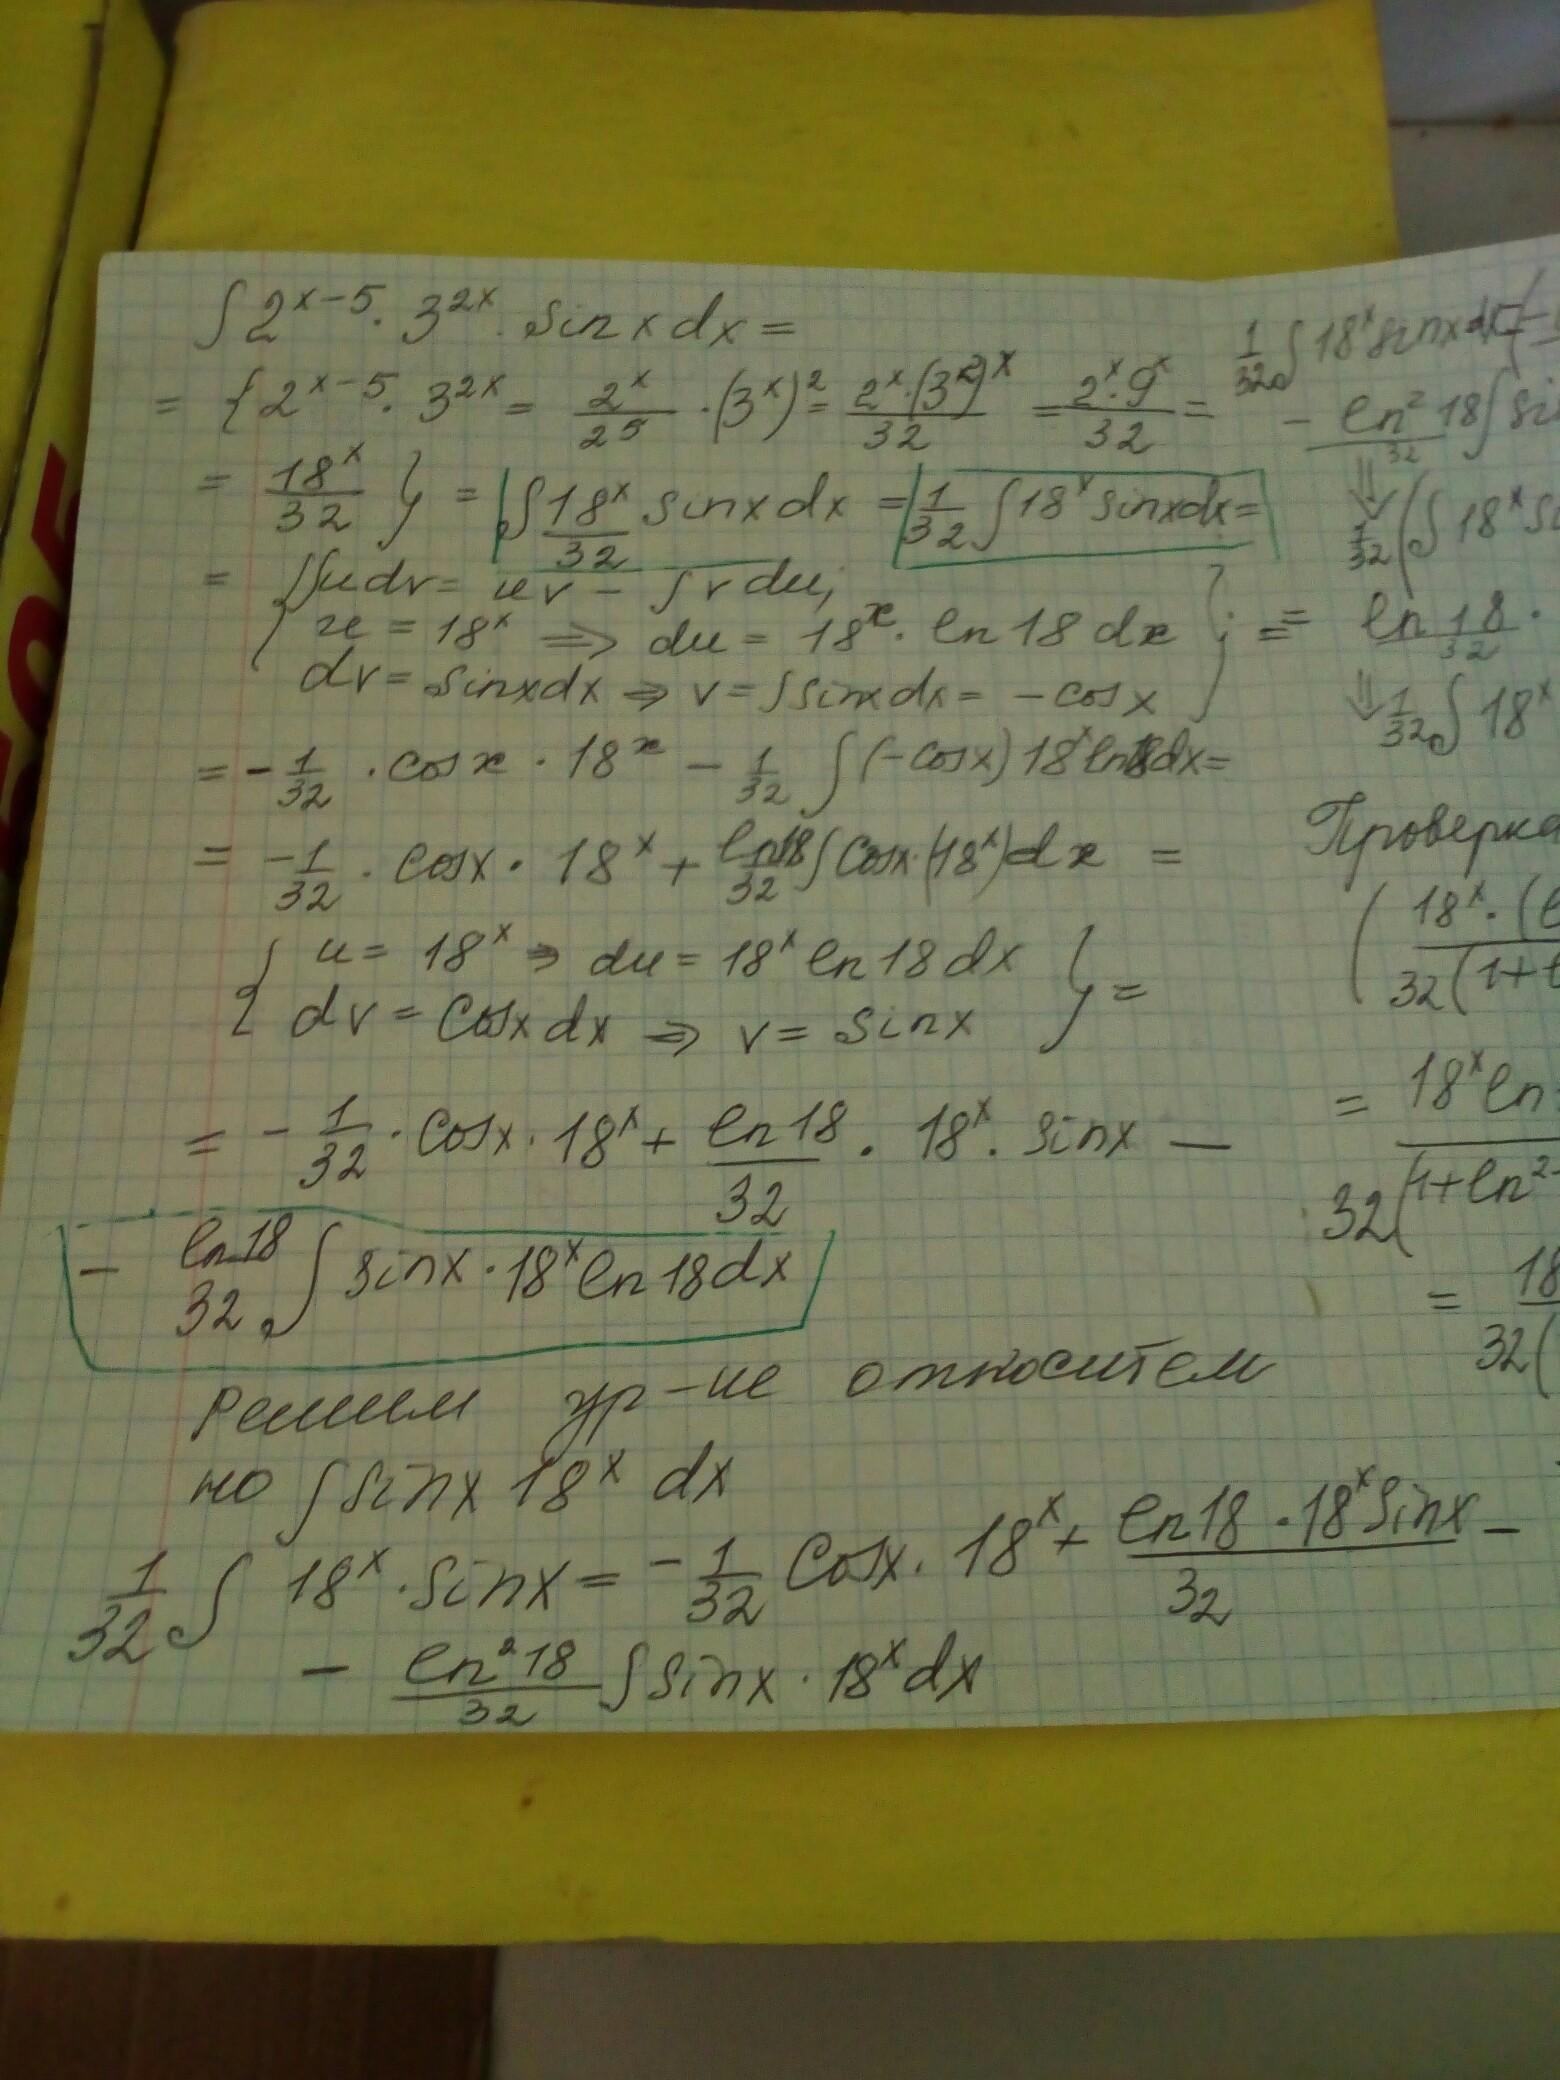 ∫ 2^(x-5) · 3^(2x) · sin x dx =
= { 2^(x-5) · 3^(2x) = 2^x/2^5 · (3^x)^2 = 2^x · (3^2)^x / 32 = 2^x · 9^x / 32 =
= 18^x/32 } = ∫ 18^x/32 sin x dx = 1/32 ∫ 18^x sin x dx =
= { ∫ u dv = uv - ∫ v du;
u = 18^x ⇒ du = 18^x · ln 18 dx
dv = sin x dx ⇒ v = ∫ sin x dx = - cos x } =
= - 1/32 · cos x · 18^x - 1/32 ∫ (-cos x) 18^x ln 18 dx =
= -1/32 · cos x · 18^x + ln 18/32 ∫ cos x · (18^x) dx =
{ u = 18^x ⇒ du = 18^x ln 18 dx
dv = cos x dx ⇒ v = sin x } =
= - 1/32 · cos x · 18^x + ln 18/32 · 18^x · sin x -
- ln 18/32 ∫ sin x · 18^x ln 18 dx
Решим ур-ие относитель
но ∫ sin x 18^x dx
1/32 ∫ 18^x · sin x = - 1/32 cos x · 18^x + ln 18 · 18^x sin x/32 -
- ln^2 18/32 ∫ sin x · 18^x dx
1/32 ∫ 18^x sin x dx
- ln^2 18/32 ∫ si
⇓ 1/32 ( ∫ 18^x si
= ln 18/32 ·
⇓ 1/32 ∫ 18^x
Проверка
( 18^x · (l / 32(1+l
= 18^x ln / 32(1+ln^2
= 18 / 32(